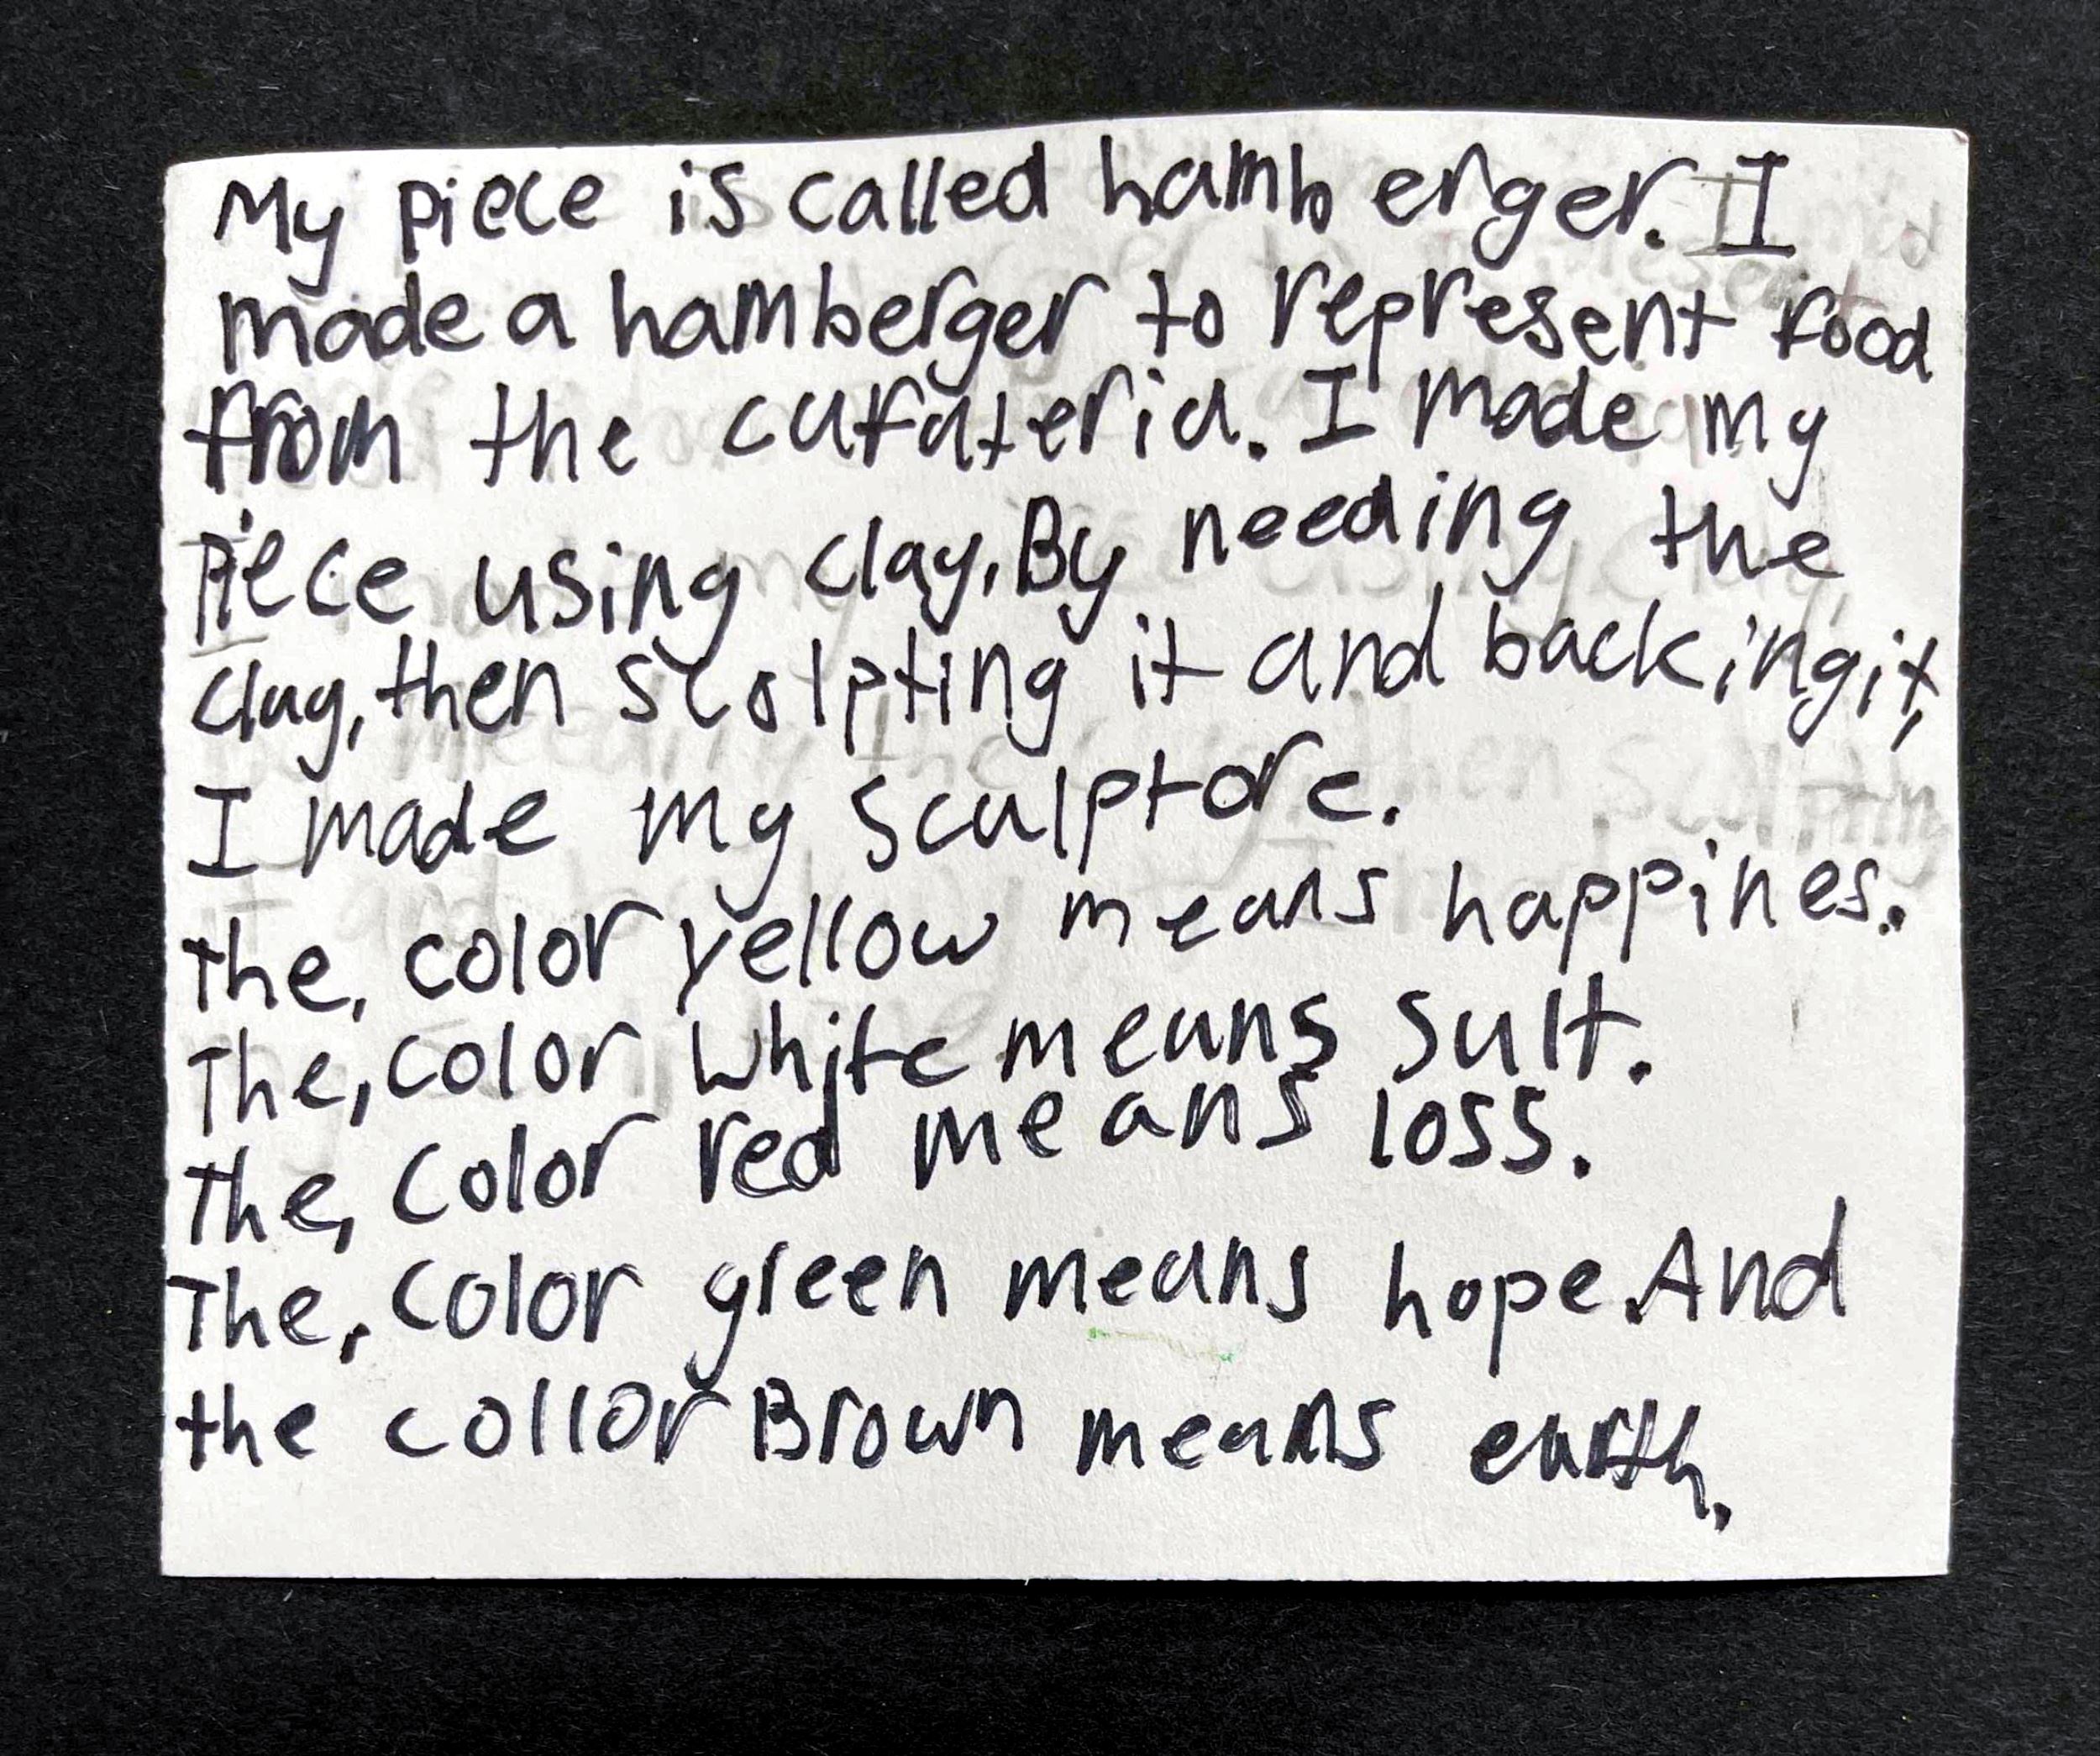 My piece is called hamberger. I
made a hamberger to represent food
from the cafateria. I made my
piece using clay. By needing the
clay, then scolpting it and backing it,
I made my sculptore.
The, color yellow means happines.
The, color white means salt.
The, color red means loss.
The, color green means hope. And
the collor Brown means earth.